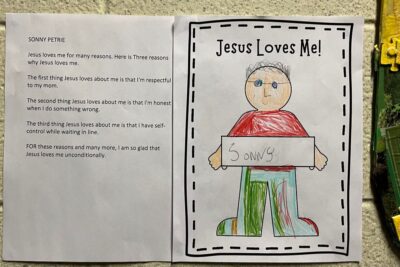 SONNY PETRIE
Jesus loves me for many reasons. Here is Three reasons
why Jesus loves me.
The first thing Jesus loves about me is that I'm respectful
to my mom.
The second thing Jesus loves about me is that I'm honest
when I do something wrong.
The third thing Jesus loves about me is that I have self-
control while waiting in line.
FOR these reasons and many more, I am so glad that
Jesus loves me unconditionally.
Jesus Loves Me!
Sonny